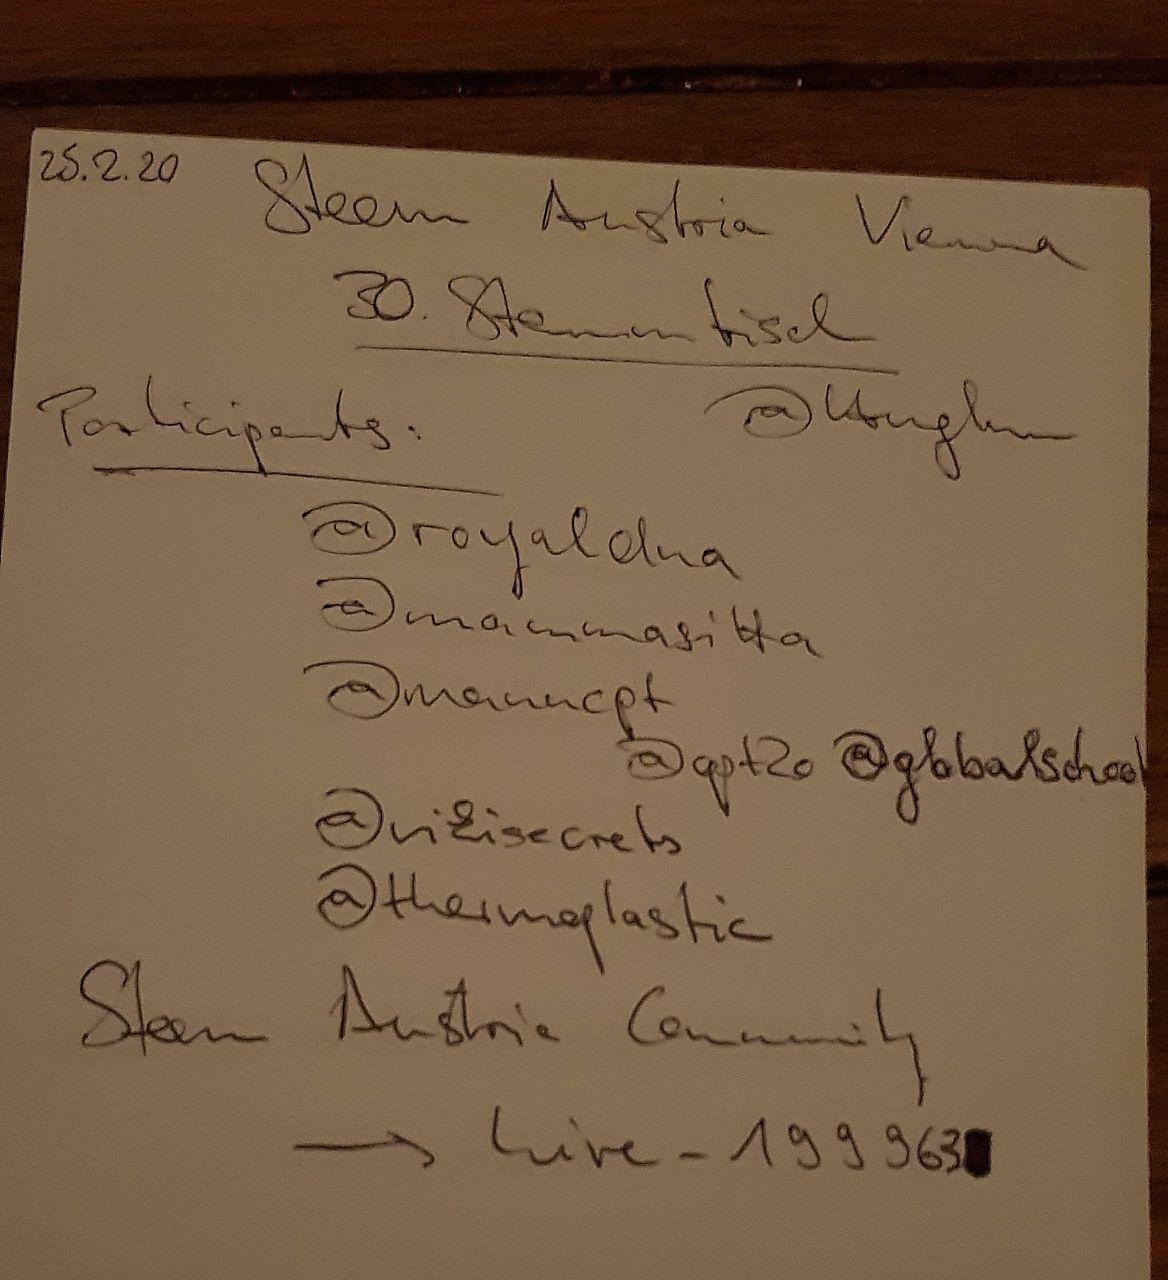 25.2.20 Steem Austria Vienna
30. Stammtisch
Participants:
@royaldna
@mammasitta
@manncpt
@qpt20 @globalschool
@vikisecrets
@thermoplastic
Steem Austria Community
→ hive-199963